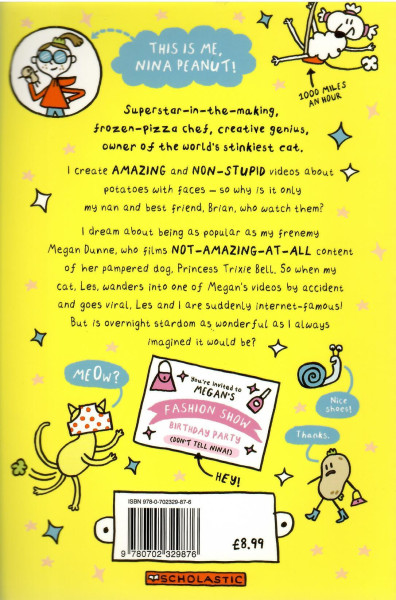 THIS IS ME,
NINA PEANUT!
1000 MILES
AN HOUR
Superstar-in-the-making,
frozen-pizza chef, creative genius,
owner of the world's stinkiest cat.
I create AMAZING and NON-STUPID videos about
potatoes with faces – so why is it only
my nan and best friend, Brian, who watch them?
I dream about being as popular as my frenemy
Megan Dunne, who films NOT-AMAZING-AT-ALL content
of her pampered dog, Princess Trixie Bell. So when my
cat, Les, wanders into one of Megan's videos by accident
and goes viral, Les and I are suddenly internet-famous!
But is overnight stardom as wonderful as I always
imagined it would be?
MEOW?
You're invited to
MEGAN'S
FASHION SHOW
BIRTHDAY PARTY
(DON'T TELL NINA!)
HEY!
Nice
shoes!
Thanks.
ISBN 978-0-702329-87-6
9 780702 329876
£8.99
SCHOLASTIC